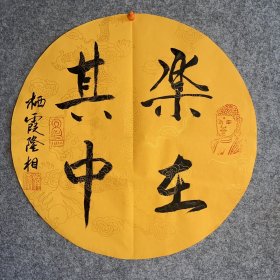 乐在
其中
栖霞隆相